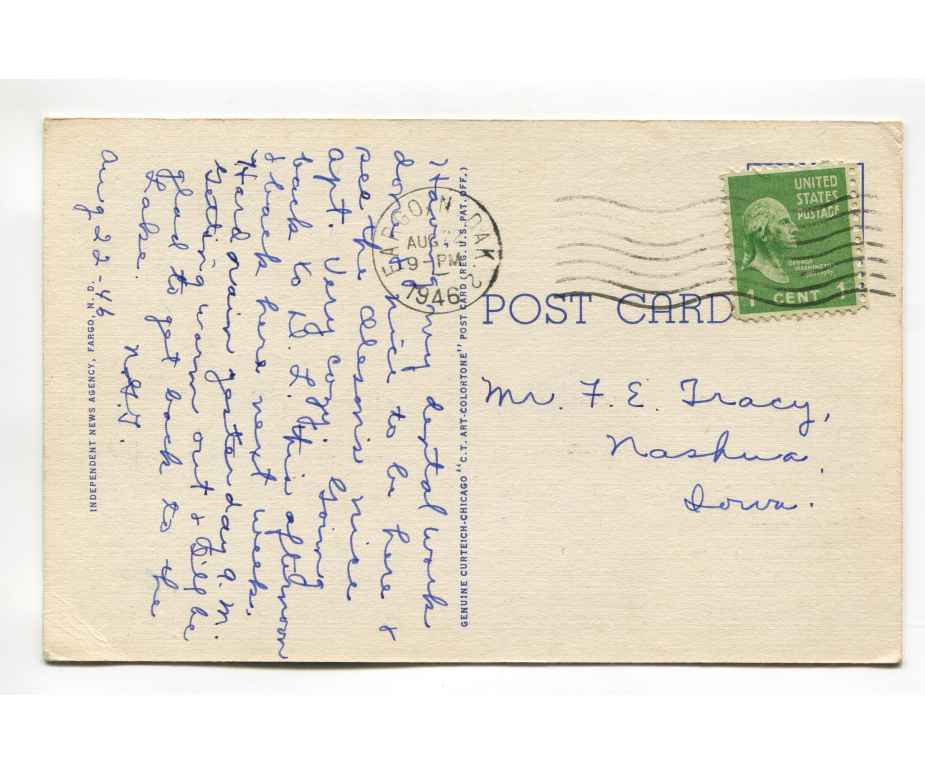 Having my dental work
done & nice to be here &
see the clesons nice
apt. Very cozy. Going
back to D. L. this afternoon
& back here next week.
Hard rain yesterday a.m.
Getting warm out & I'll be
glad to get back to the
Lake.
Aug 22-46
INDEPENDENT NEWS AGENCY, FARGO, N. D.
GENUINE CURTEICH-CHICAGO "C.T. ART-COLORTONE" POST CARD (REG. U.S. PAT. OFF.)
FARGO, N. DAK. 2
AUG
9 - PM
1946
UNITED
STATES
POSTAGE
GEORGE
WASHINGTON
1 CENT 1
POST CARD
Mr. F. E. Tracy,
Nashua,
Iowa.